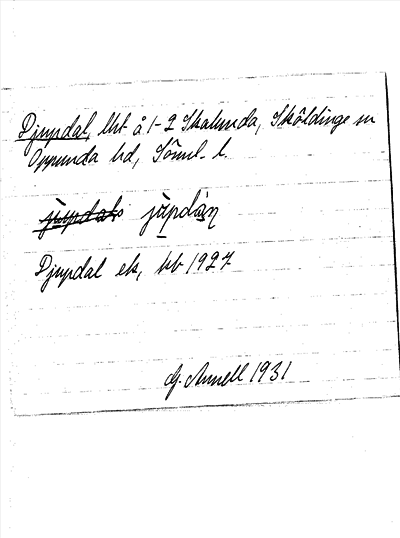 Djupdal, lht å 1-2 Skalunda, Sköldinge sn
Oppunda hd, Söml. l.
jupdaln
Djupdal ek, kb 1927
G. Annell 1931